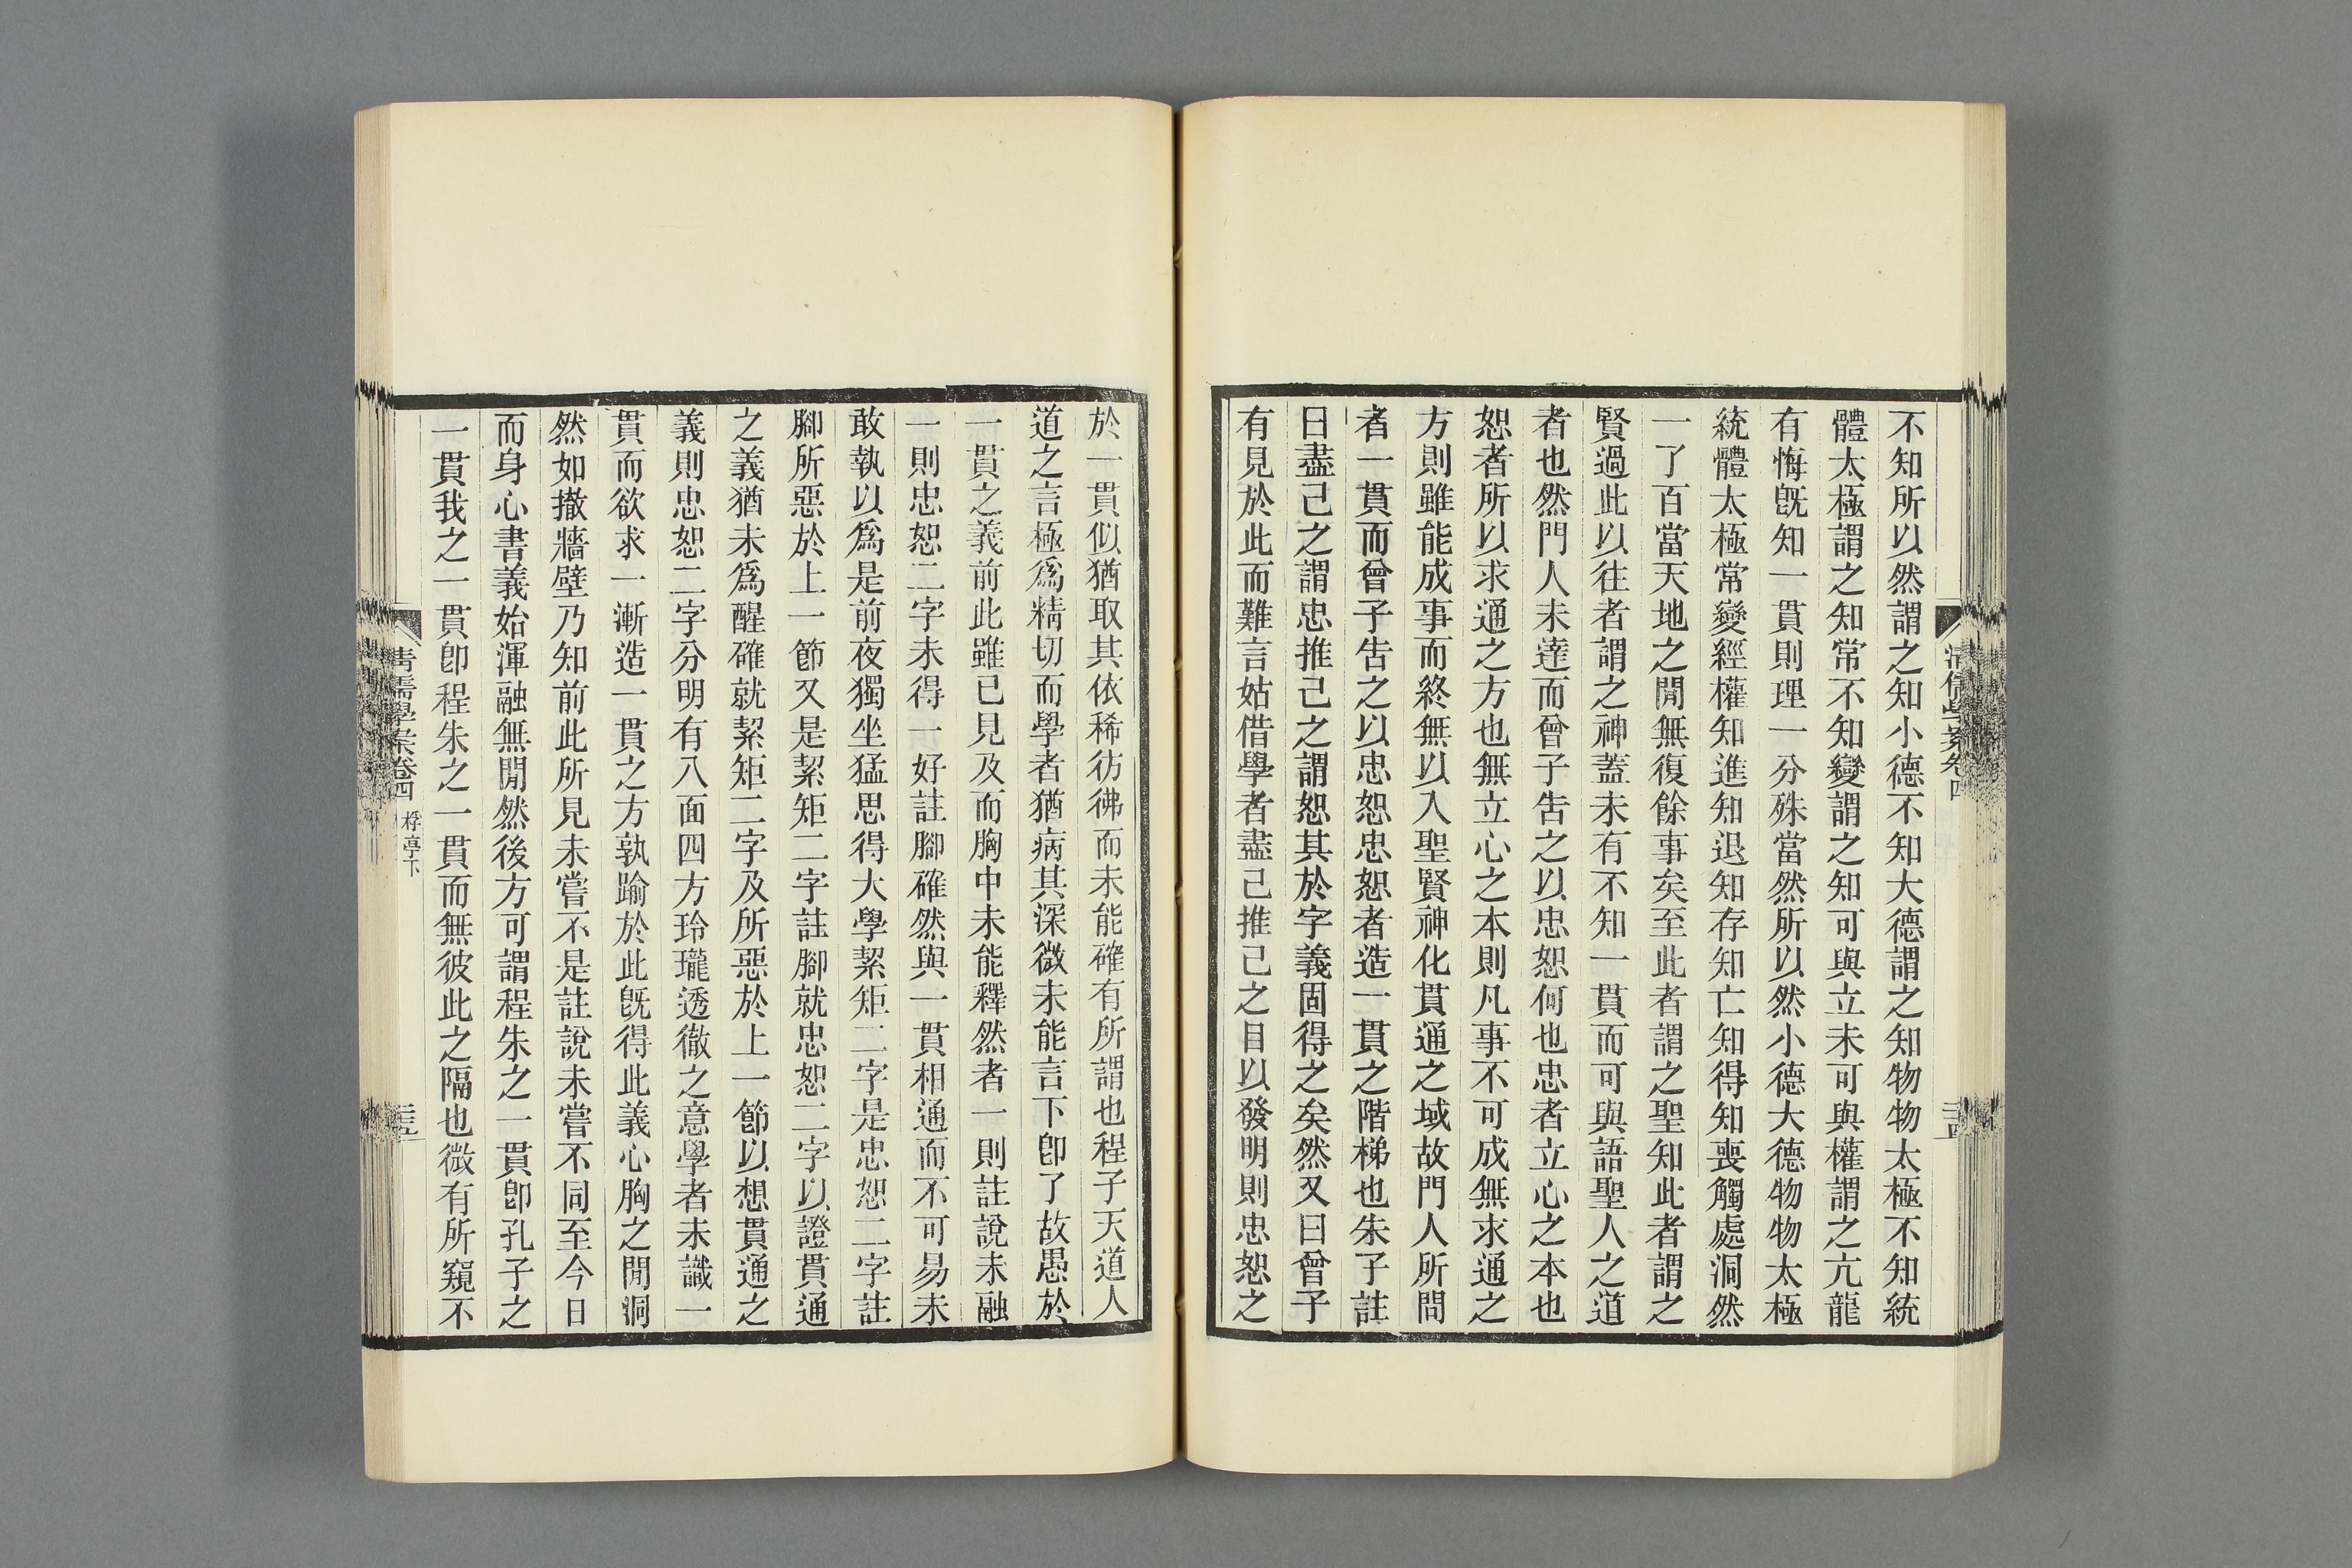 不知所以然謂之知小德不知大德謂之知物物太極不知統
體太極謂之知常不知變謂之知可與立未可與權謂之亢龍
有悔旣知一貫則理一分殊當然所以然小德大德物物太極
統體太極常變經權知進知退知存知亡知得知喪觸處洞然
一了百當天地之閒無復餘事矣至此者謂之聖知此者謂之
賢過此以往者謂之神蓋未有不知一貫而可與語聖人之道
者也然門人未達而曾子告之以忠恕何也忠者立心之本也
恕者所以求通之方也無立心之本則凡事不可成無求通之
方則雖能成事而終無以入聖賢神化貫通之域故門人所問
者一貫而曾子告之以忠恕忠恕者造一貫之階梯也朱子註
曰盡己之謂忠推己之謂恕其於字義固得之矣然又曰曾子
有見於此而難言姑借學者盡己推己之目以發明則忠恕之
清儒學案卷四
三十四
於一貫似猶取其依稀彷彿而未能確有所謂也程子天道人
道之言極爲精切而學者猶病其深微未能言下卽了故愚於
一貫之義前此雖已見及而胸中未能釋然者一則註說未融
一則忠恕二字未得一好註腳確然與一貫相通而不可易未
敢執以爲是前夜獨坐猛思得大學絜矩二字是忠恕二字註
腳所惡於上一節又是絜矩二字註腳就忠恕二字以證貫通
之義猶未爲醒確就絜矩二字及所惡於上一節以想貫通之
義則忠恕二字分明有八面四方玲瓏透徹之意學者未識一
貫而欲求一漸造一貫之方孰踰於此旣得此義心胸之閒洞
然如撤牆壁乃知前此所見未嘗不是註說未嘗不同至今日
而身心書義始渾融無閒然後方可謂程朱之一貫卽孔子之
一貫我之一貫卽程朱之一貫而無彼此之隔也微有所窺不
清儒學案卷四 桴亭下
三十五